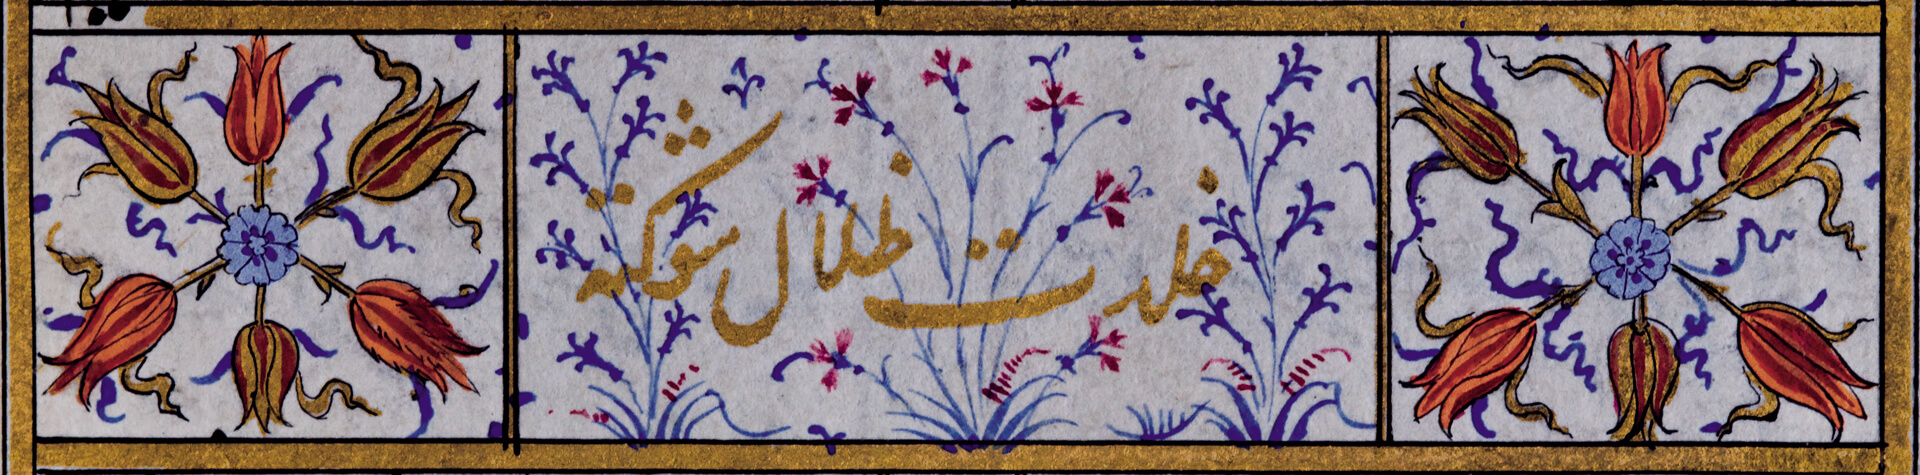 خلدت ظلال شوكته